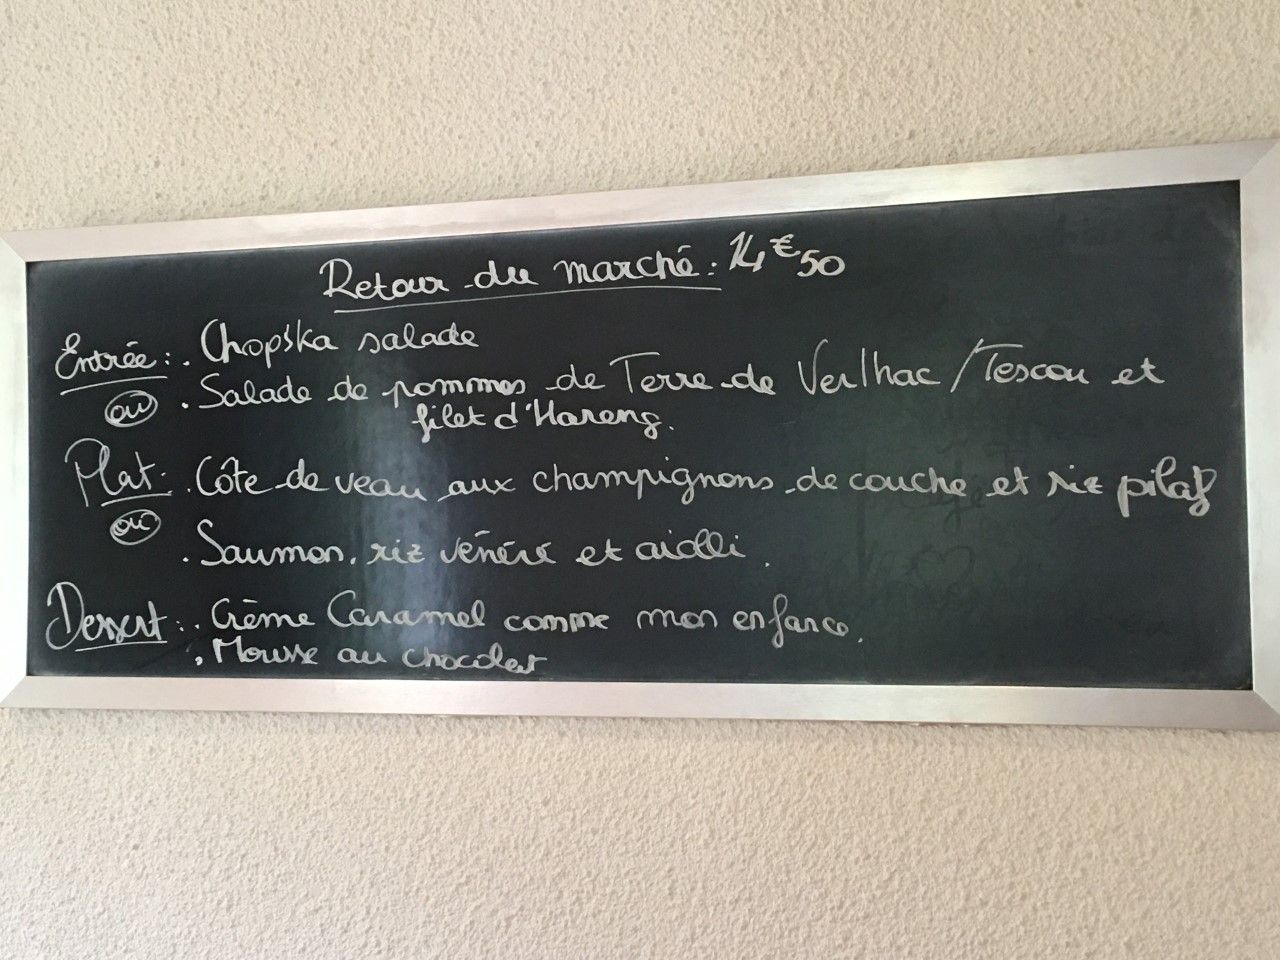 Retour du marché : 14€50
Entrée : . Chopska salade
ou . Salade de pommes de Terre de Verlhac/Tescou et
filet d'Hareng.
Plat : . Côte de veau aux champignons de couche et riz pilaf
ou
. Saumon, riz vénéré et aïolli.
Dessert : . Crème Caramel comme mon enfance.
. Mousse au chocolat